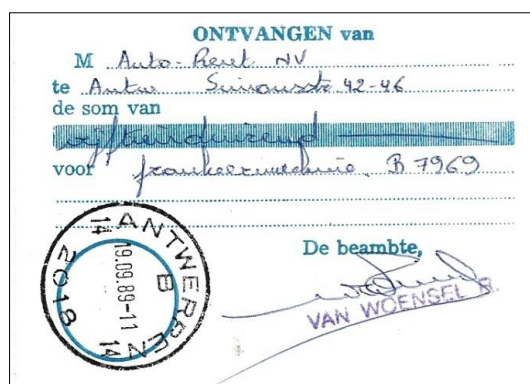 ONTVANGEN van
M Auto-Rent NV
te Antw 42-46
de som van
vijftienduizend
voor frankeermachine B 7969
De beambte,
VAN WOENSEL R.
ANTWERPEN 14
B
19.09.89-11
14 2018